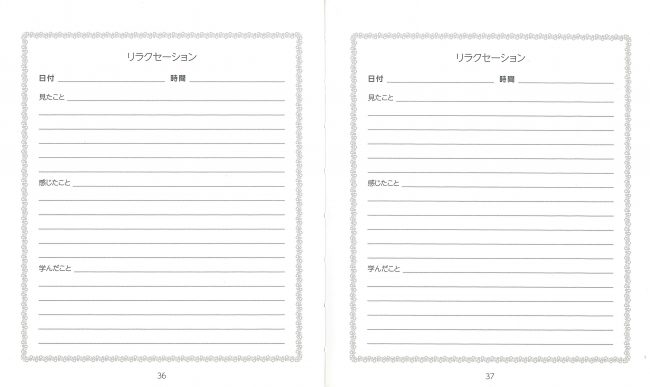 リラクセーション
日付 時間
見たこと
感じたこと
学んだこと
36
リラクセーション
日付 時間
見たこと
感じたこと
学んだこと
37